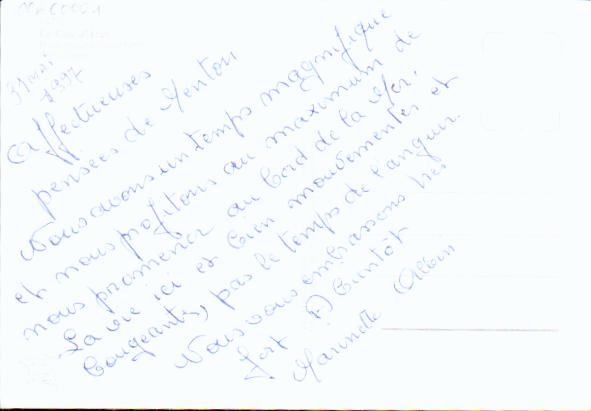 31 mai
1997
Affectueuses
pensées de Menton
Nous avons un temps magnifique
et nous profitons au maximum de
nous promener au bord de la Mer.
La vie ici est bien mouvementée et
bougeante, pas le temps de languir.
Nous vous embrassons très
fort. A bientôt
Marinette Albin